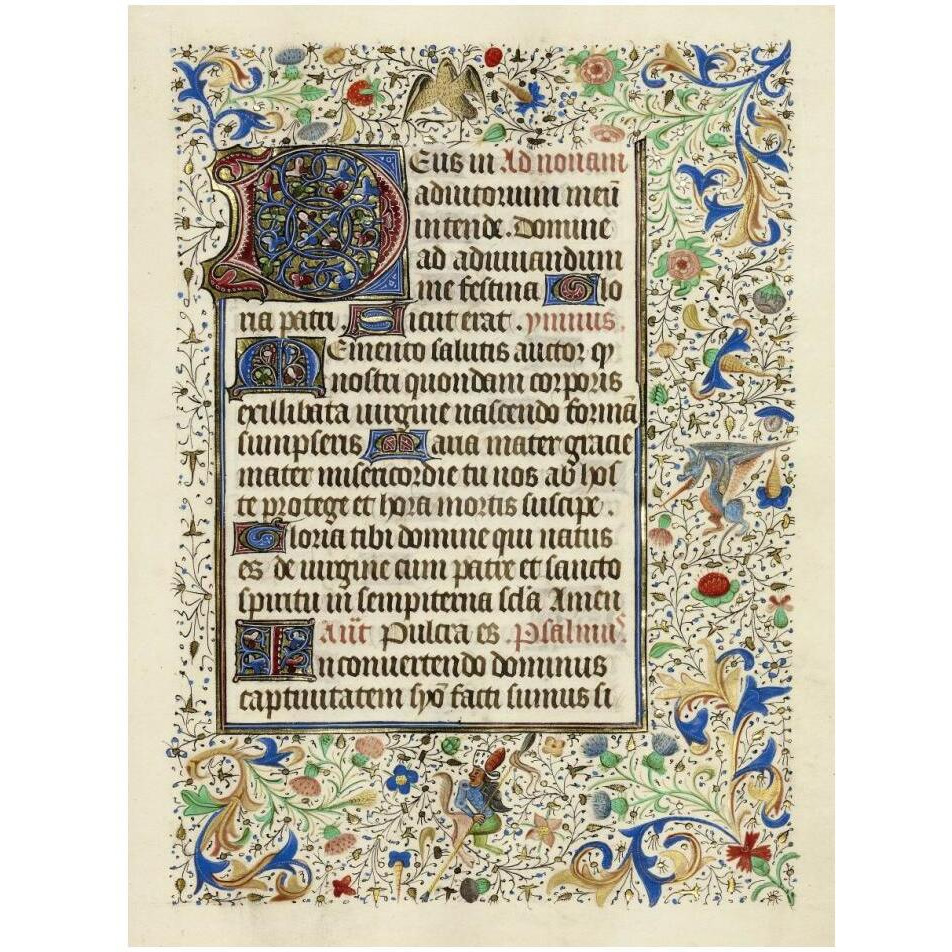 Deus in Ad nonam
adiutorium meū
intende. Domine
ad adiuuandum
me festina Glo
ria patri Sicut erat. ymnus.
Memento salutis auctor qr
nostri quondam corporis
ex illibata uirgine nascendo formā
sumpseris Maria mater gracie
mater misericordie tu nos ab hos
te protege et hora mortis suscipe.
Gloria tibi domine qui natus
es de uirgine cum patre et sancto
spiritu in sempiterna scl̄a Amen
Añt Pulcra es Psalmus.
In conuertendo dominus
captiuitatem syō facti sumus si